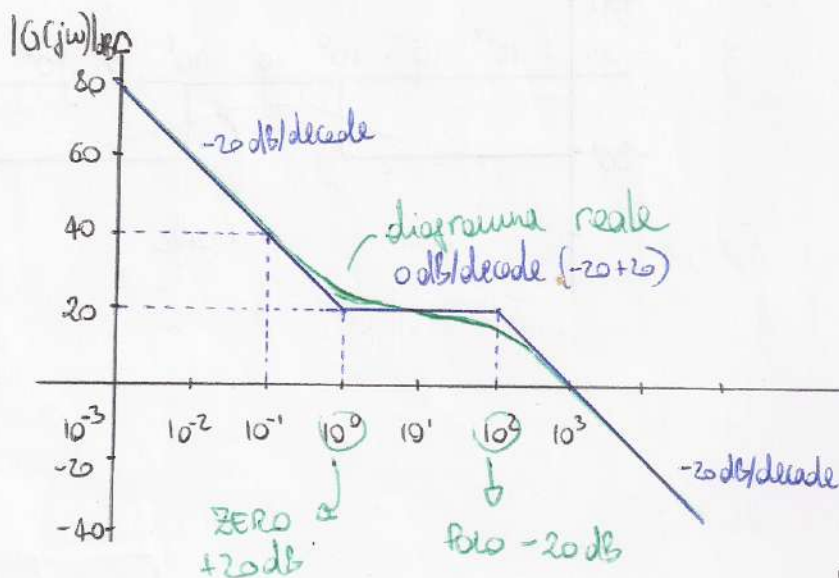 |G(jω)|dB
80
-20 dB/decade
60
diagramma reale
40
0 dB/decade (-20+20)
20
10⁻³ 10⁻² 10⁻¹ 10⁰ 10¹ 10² 10³
-20
-20 dB/decade
ZERO
+20 dB
POLO -20 dB
-40